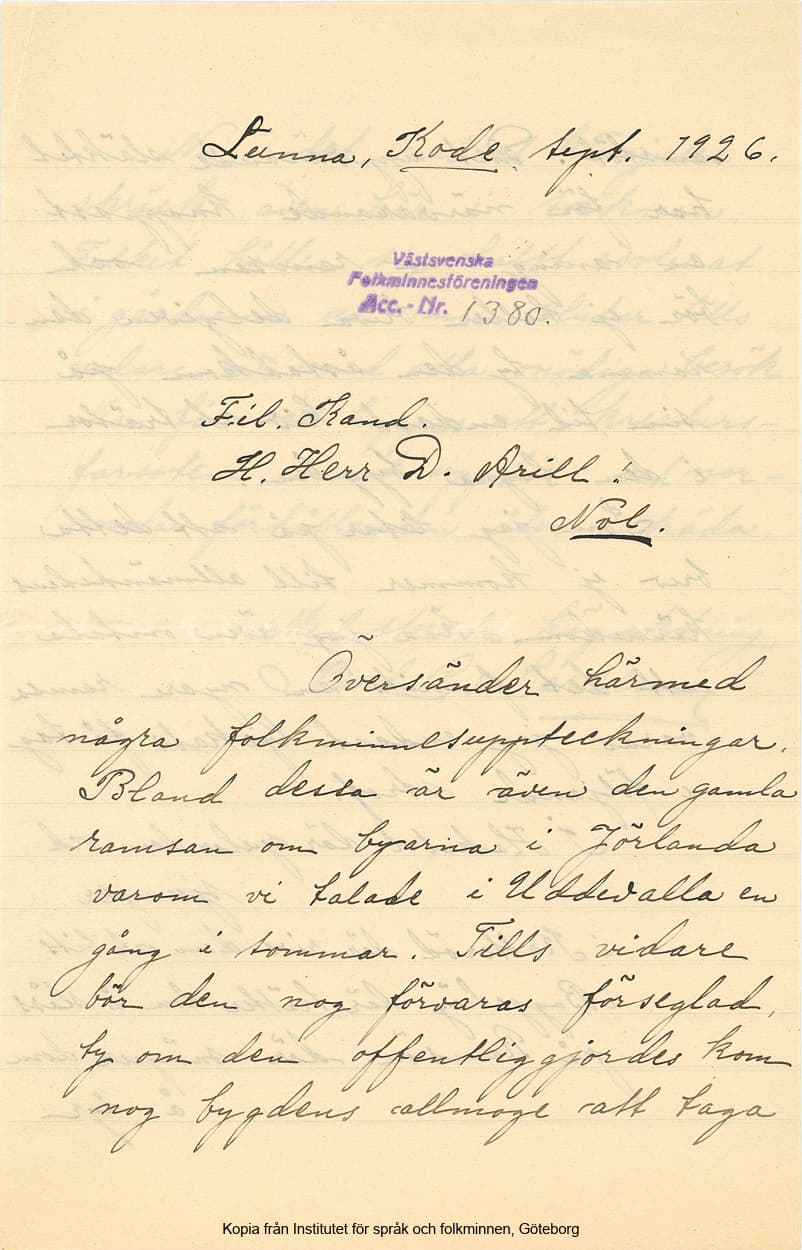 Lunna, Kode sept. 1926.
Västsvenska
Folkminnesföreningen
Acc.-Nr. 1380.
Fil. Kand.
H. Herr D. Arill!
Nol.
Översänder härmed
några folkminnesuppteckningar.
Bland dessa är även den gamla
ramsan om byarna i Jörlanda
varom vi talade i Uddevalla en
gång i sommar. Tills vidare
bör den nog förvaras förseglad,
ty om den offentliggjordes kom
nog bygdens allmoge att taga
Kopia från Institutet för språk och folkminnen, Göteborg